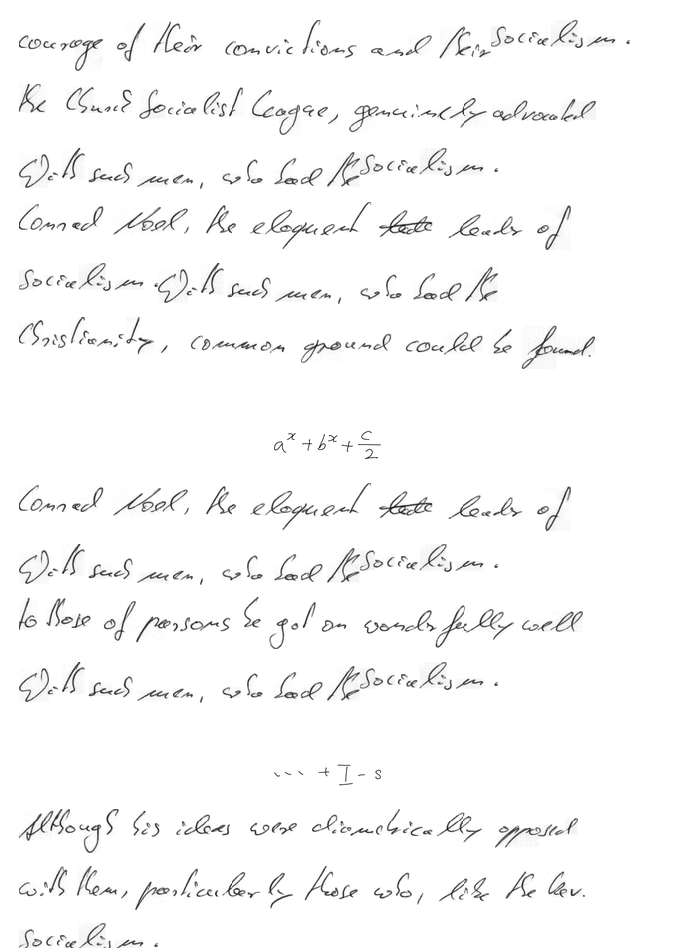 courage of their convictions and their Socialism.
the Church Socialist League, genuinely advocated
With such men, who had the Socialism.
Conrad Noel, the eloquent leader of
Socialism. With such men, who had the
Christianity, common ground could be found.
a^x + b^x + \frac{c}{2}
Conrad Noel, the eloquent leader of
With such men, who had the Socialism.
to those of parsons he got on wonderfully well
With such men, who had the Socialism.
... + I - s
Although his ideas were diametrically opposed
with them, particularly those who, like the Rev.
Socialism.